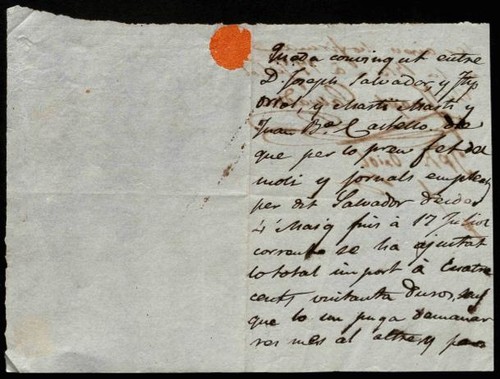 Queda convingut entre
D. Joseph Salvador, y
Oriol, y Martí Martí y
Juan Bta Castello, de
que per lo preu fet del
molí y jornals empleats
per dit Salvador desde
4 Maig fins á 17 Juliol
corrent se ha ajustat
lo total import á Cuatre
cents vuitanta duros, sens
que lo un puga demanar
res mes al altre, y per